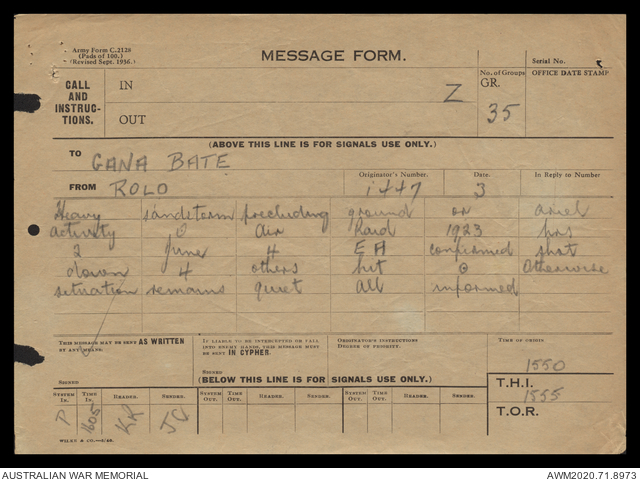 Army Form C.2128
(Pads of 100.)
(Revised Sept. 1936.)
MESSAGE FORM.
Serial No.
CALL AND INSTRUCTIONS.
IN
Z
No. of Groups
GR.
35
OFFICE DATE STAMP
OUT
(ABOVE THIS LINE IS FOR SIGNALS USE ONLY.)
TO GANA BATE
FROM ROLO
Originator's Number. 1447
Date. 3
In Reply to Number
Heavy sandstorm precluding ground or ariel
activity ⊙ Air Raid 1923 hrs
2 June 4 EA confirmed shot
down 4 others hit ⊙ Otherwise
situation remains quiet all informed
THIS MESSAGE MAY BE SENT AS WRITTEN
BY ANY MEANS.
SIGNED
IF LIABLE TO BE INTERCEPTED OR FALL
INTO ENEMY HANDS, THIS MESSAGE MUST
BE SENT IN CYPHER.
SIGNED
ORIGINATOR'S INSTRUCTIONS
DEGREE OF PRIORITY.
TIME OF ORIGIN.
1550
(BELOW THIS LINE IS FOR SIGNALS USE ONLY.)
T.H.I. 1555
T.O.R.
SYSTEM IN. TIME IN. READER. SENDER. SYSTEM OUT. TIME OUT. READER. SENDER. SYSTEM OUT. TIME OUT. READER. SENDER.
P 1605 KR
WILKE & CO.
AUSTRALIAN WAR MEMORIAL
AWM2020.71.8973